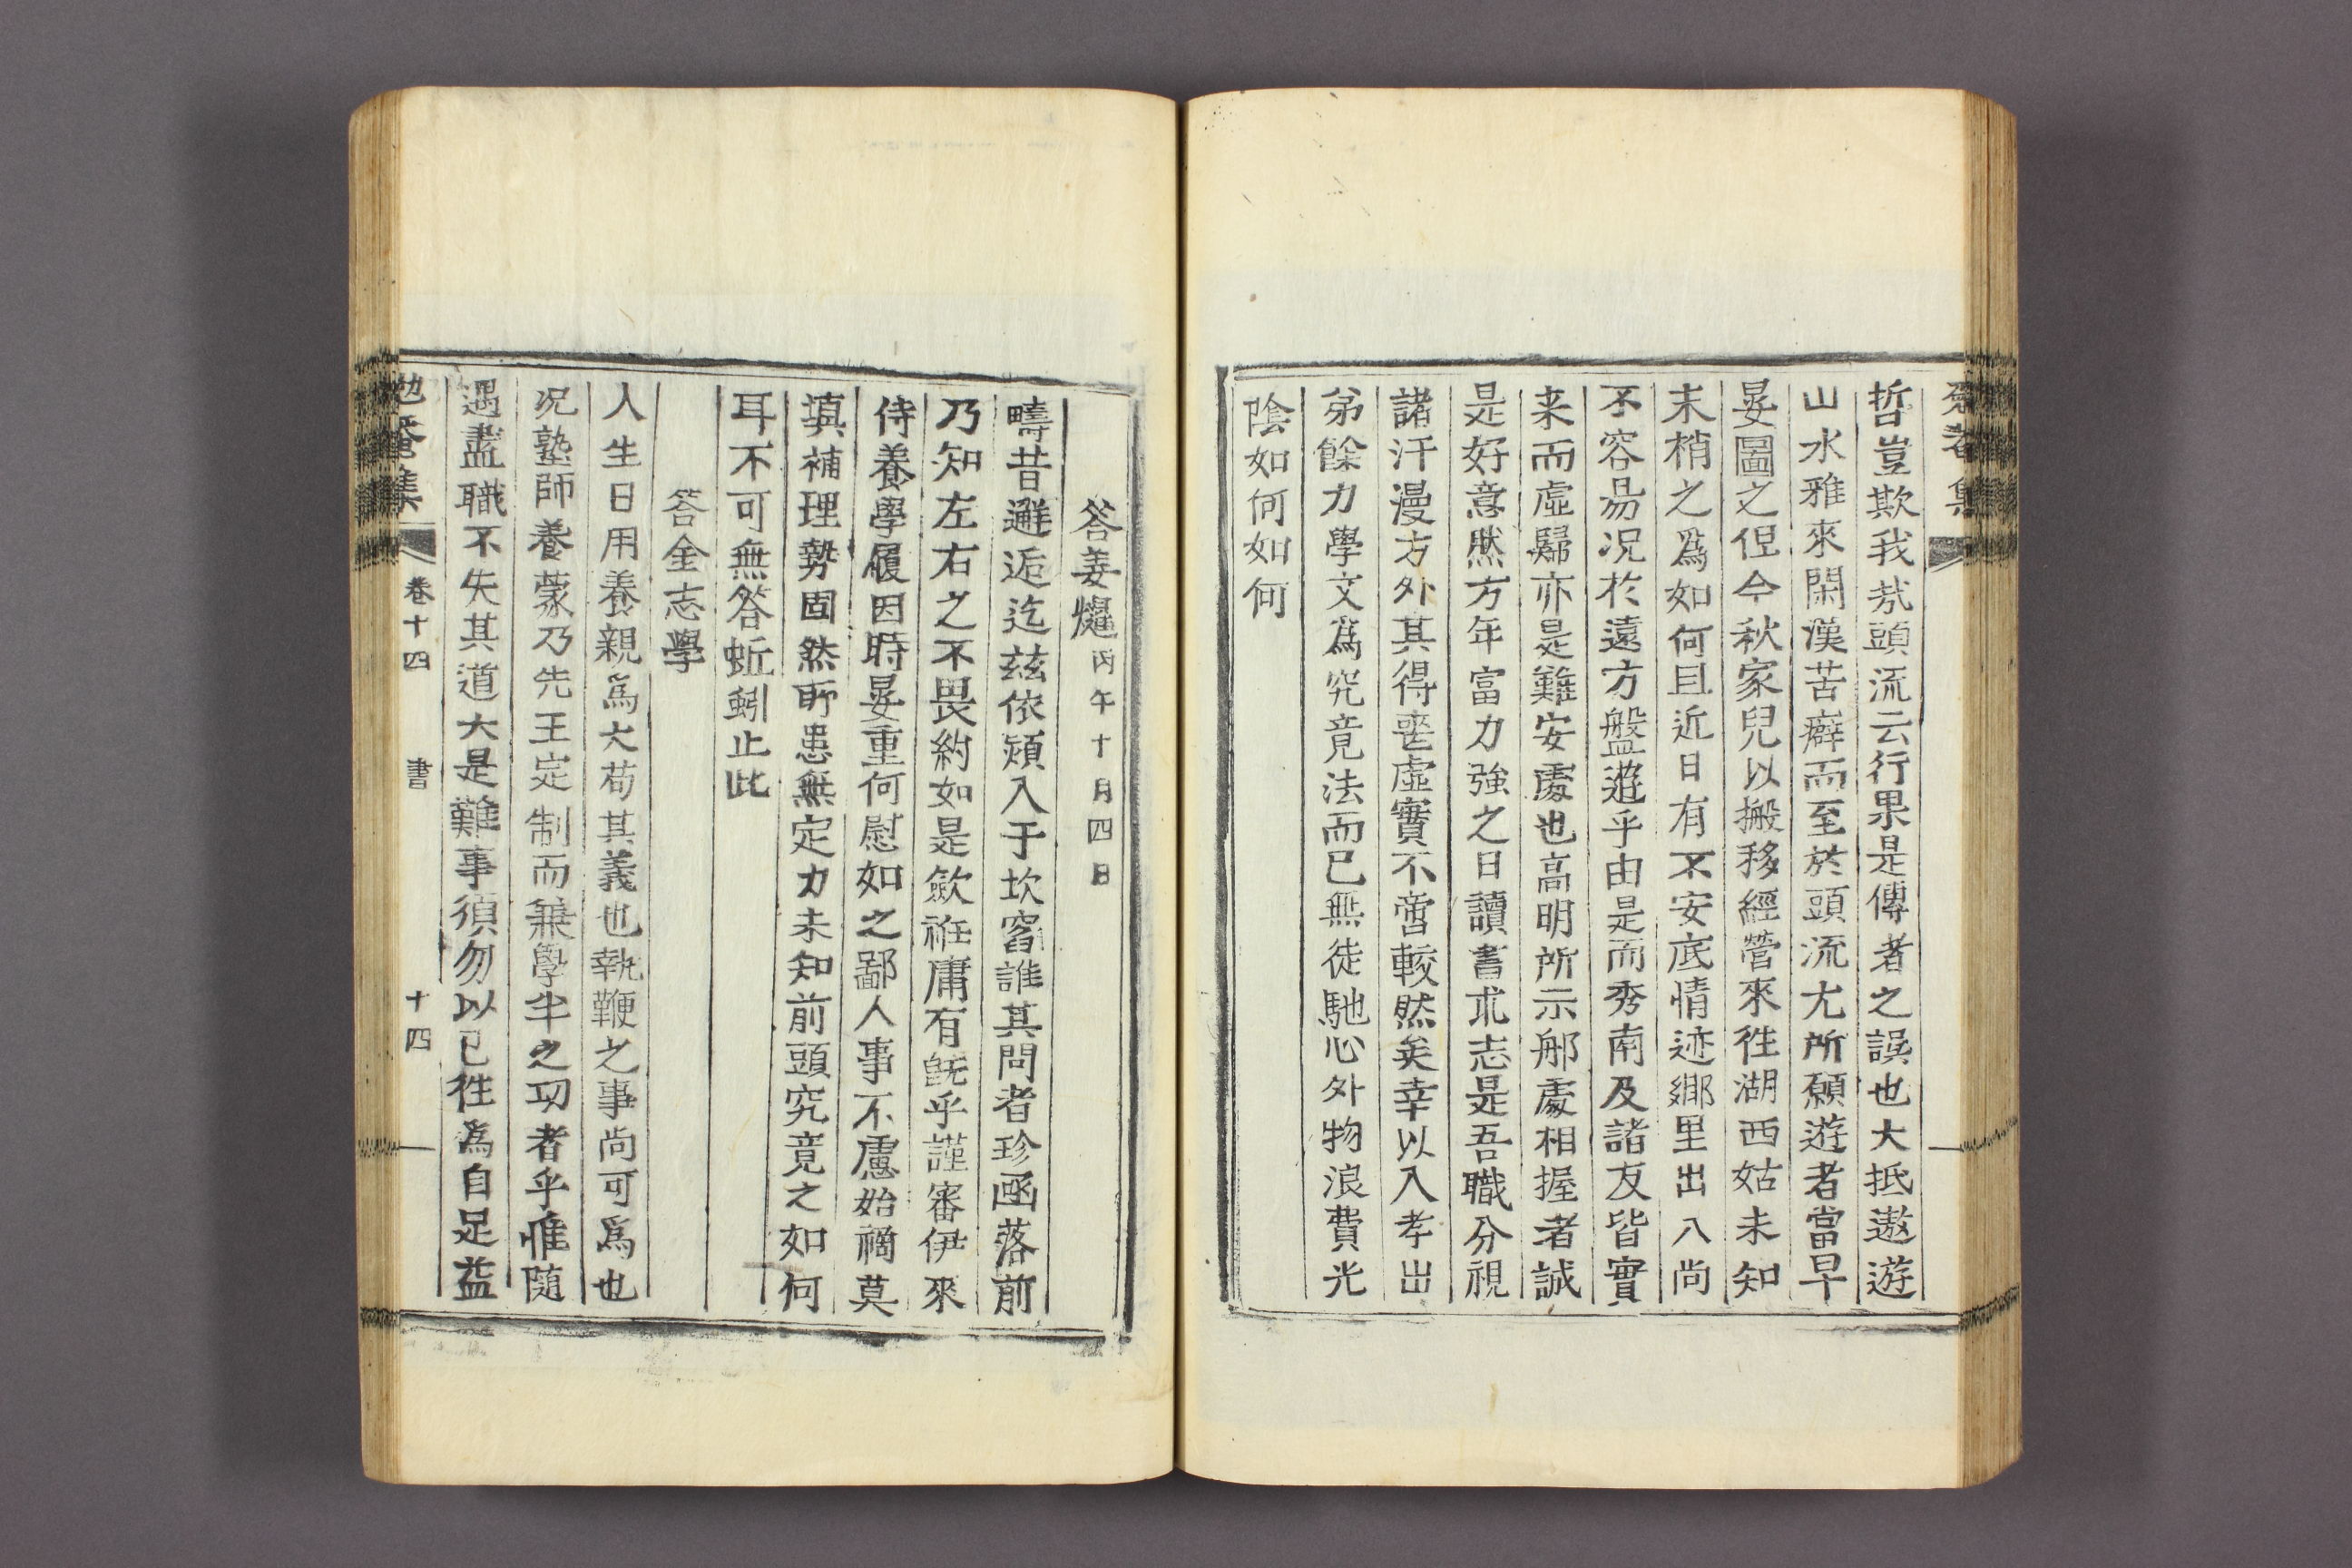 哲豈欺我㦲頭流云行果是傳者之誤也大抵遨遊
山水雅來閑漢苦癖而至於頭流尤所願遊者當早
晏圖之但今秋家兒以搬移經營來徃湖西姑未知
末梢之爲如何且近日有不安底情迹鄕里出入尚
不容易况於遠方盤遊乎由是而秀南及諸友皆實
来而虛歸亦是難安處也高明所示那處相握者誠
是好意然方年富力強之日讀書求志是吾職分視
諸汗漫方外其得喪虛實不啻較然矣幸以入孝出
弟餘力學文爲究竟法而已無徒馳心外物浪費光
陰如何如何
答姜爗丙午十月四日
疇昔邂逅迄玆依頫入于坎窞誰其問者珍凾落前
乃知左右之不畏約如是歛衽庸有旣乎謹審伊來
侍養學履因時晏重何慰如之鄙人事不慮始禍莫
塡補理勢固然所患無定力未知前頭究竟之如何
耳不可無答蚯蚓止此
答金志學
人生日用養親爲大苟其義也執鞭之事尚可爲也
况塾師養蒙乃先王定制而兼學半之功者乎惟隨
遇盡職不失其道大是難事須勿以已徃爲自足益
卷十四 書 十四